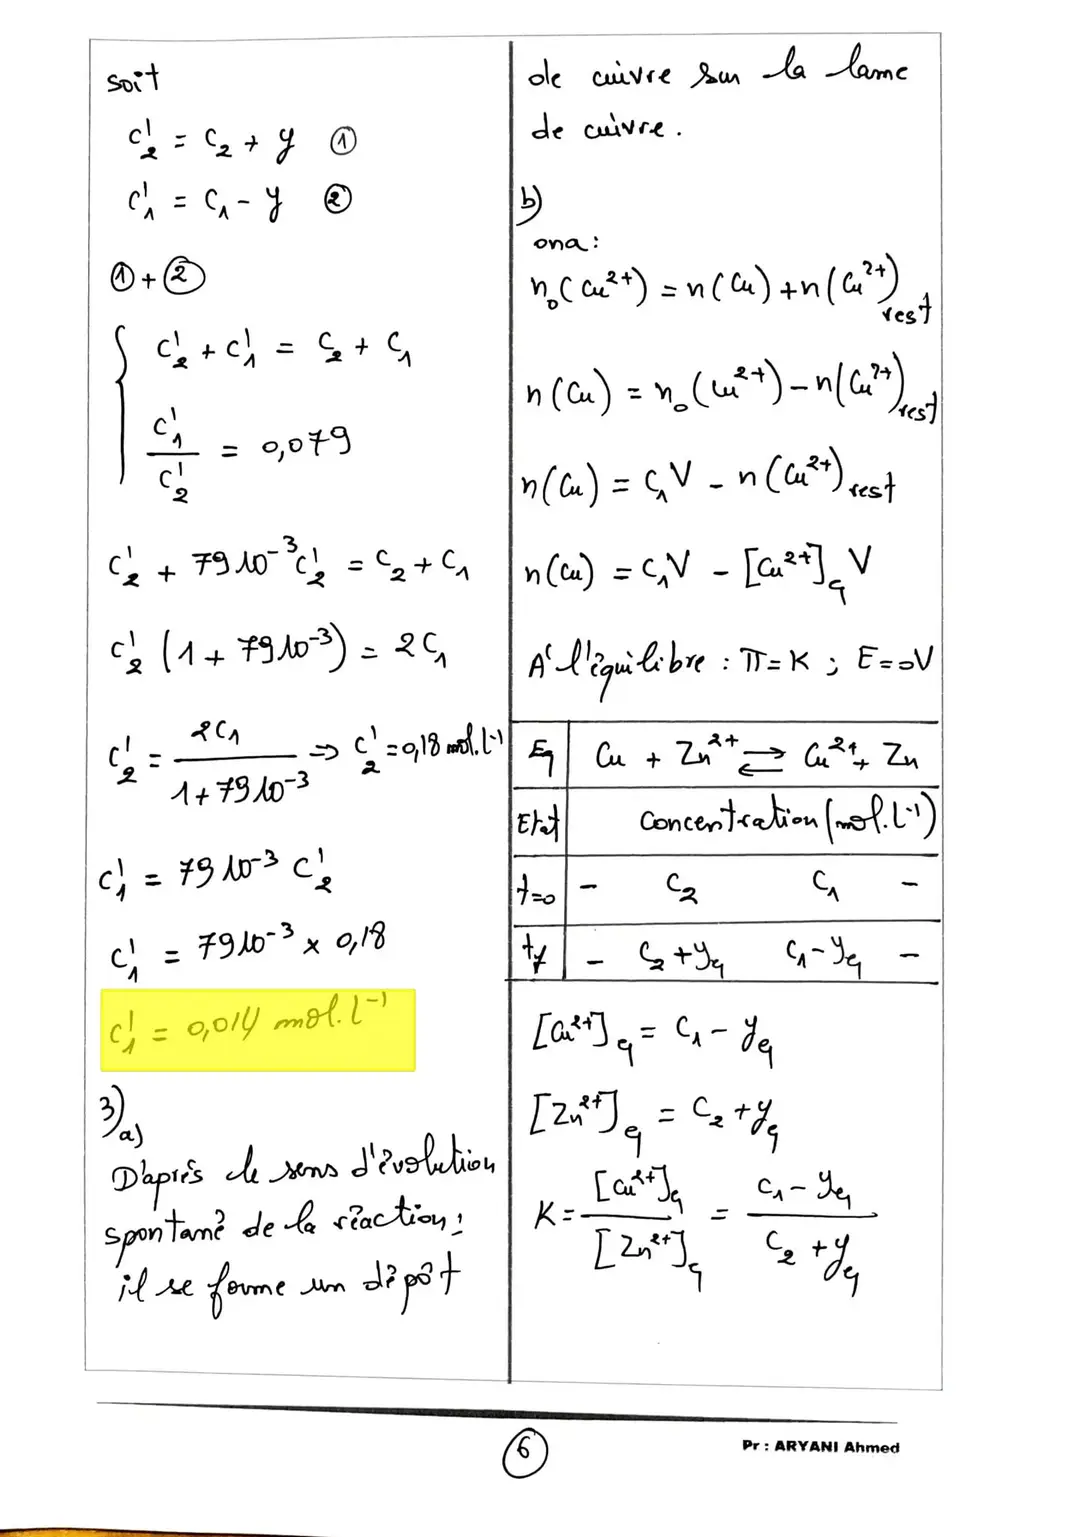 soit
C'₂ = C₂ + y ①
C'₁ = C₁ - y ②
① + ②
C'₂ + C'₁ = C₂ + C₁
C'₁ / C'₂ = 0,079
C'₂ + 79 10⁻³ C'₂ = C₂ + C₁
C'₂ (1 + 79 10⁻³) = 2C₁
C'₂ = 2C₁ / 1 + 79 10⁻³ => C'₂ = 0,18 mol.L⁻¹
C'₁ = 79 10⁻³ C'₂
C'₁ = 79 10⁻³ × 0,18
C'₁ = 0,014 mol.l⁻¹
3) a)
D'aprés le sens d'évolution
spontané de la réaction :
il se forme un dépôt
de cuivre sur la lame
de cuivre .
b)
ona :
n₀(Cu²⁺) = n(Cu) + n(Cu²⁺)rest
n(Cu) = n₀(Cu²⁺) - n(Cu²⁺)rest
n(Cu) = C₁V - n(Cu²⁺)rest
n(Cu) = C₁V - [Cu²⁺]éq V
A' l'équilibre : π = K ; E = 0V
Eq Cu + Zn²⁺ ⇌ Cu²⁺ + Zn
Etat Concentration (mol.L⁻¹)
t=0 - C₂ C₁ -
tf - C₂ + yéq C₁ - yéq -
[Cu²⁺]éq = C₁ - yéq
[Zn²⁺]éq = C₂ + yéq
K = [Cu²⁺]éq / [Zn²⁺]éq = C₁ - yéq / C₂ + yéq
6
Pr : ARYANI Ahmed